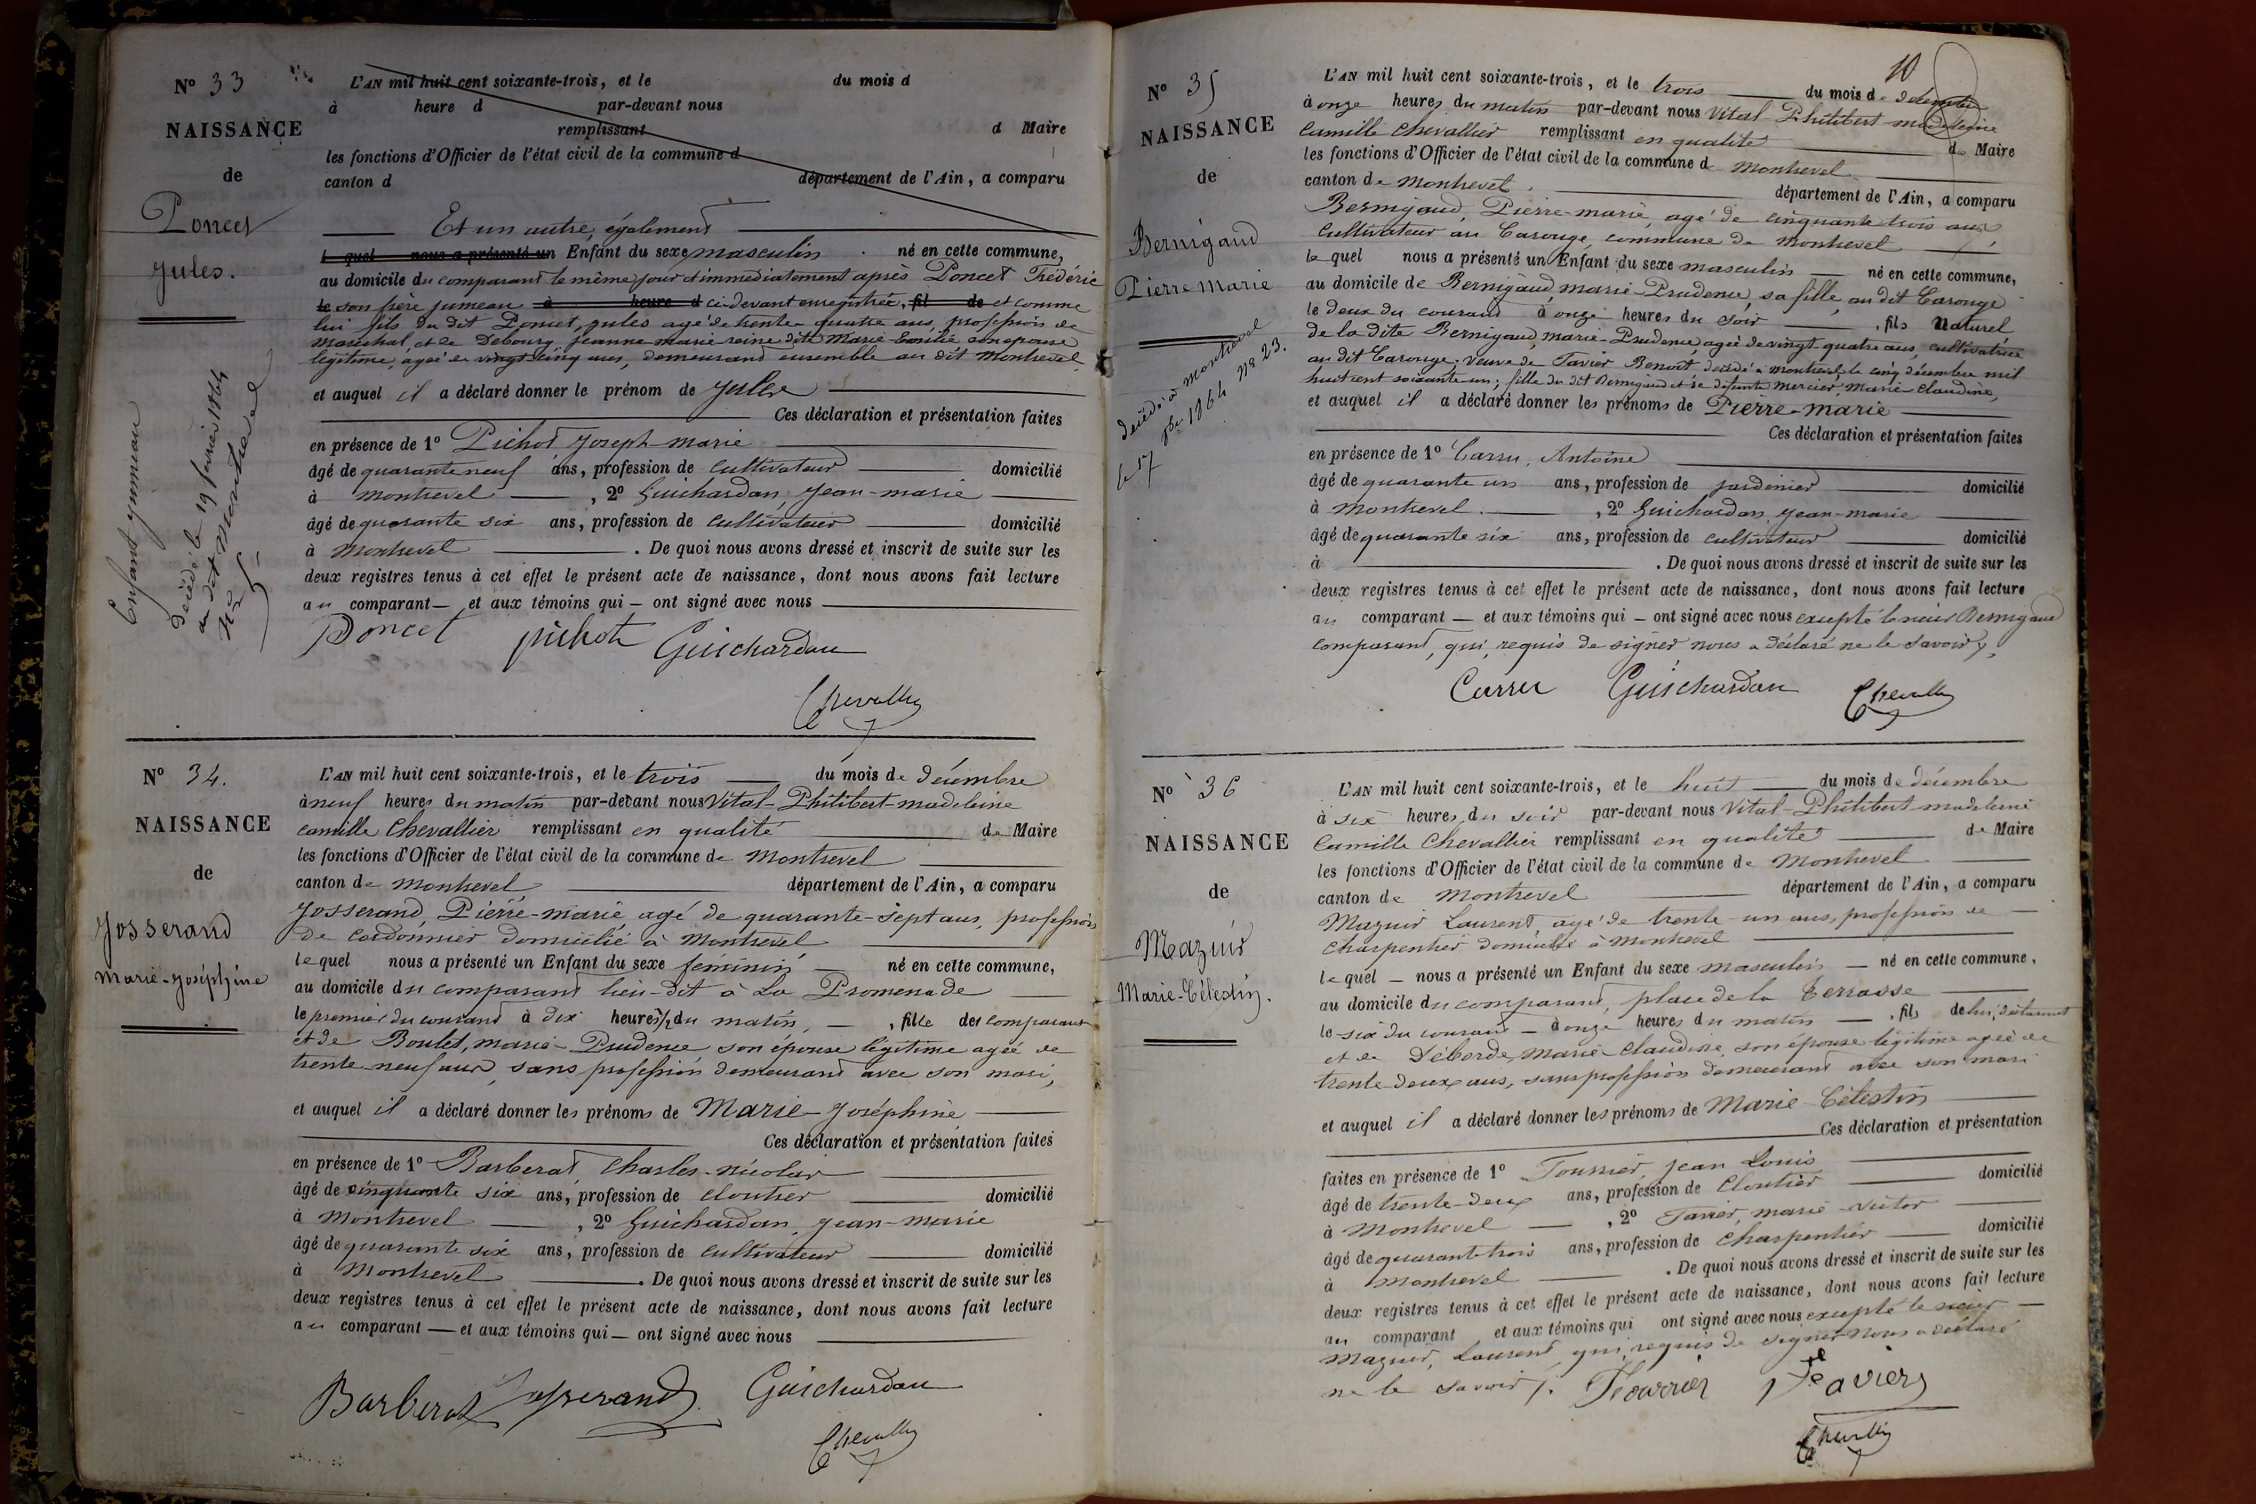 Nº 33
NAISSANCE
de
Poncet
Jules.
Enfant jumeau
Décédé le 19 février 1864
au dit Montrevel
Nº 5
L'AN mil huit cent soixante-trois, et le du mois d
à heure d par-devant nous
remplissant d Maire
les fonctions d'Officier de l'état civil de la commune d
canton d département de l'Ain, a comparu
Et un autre, également
l quel nous a présenté un Enfant du sexe masculin né en cette commune,
au domicile du comparant le même jour et immédiatement après Poncet Frédéric
le son frère jumeau à heure d ci-devant enregistrée, fil de et comme
lui fils du dit Poncet, Jules agé de trente-quatre ans, profession de
maréchal, et de Debourg, Jeanne-marie reine dite Marie-Emilie son epouse
légitime, agée de vingt cinq ans, demeurand ensemble au dit Montrevel,
et auquel il a déclaré donner le prénom de Jules
Ces déclaration et présentation faites
en présence de 1º Pichot, Joseph-marie
âgé de quarante neuf ans, profession de cultivateur domicilié
à Montrevel, 2º Guichardan, Jean-marie
âgé de quarante six ans, profession de cultivateur domicilié
à Montrevel. De quoi nous avons dressé et inscrit de suite sur les
deux registres tenus à cet effet le présent acte de naissance, dont nous avons fait lecture
au comparant — et aux témoins qui — ont signé avec nous
Poncet pichot Guichardan
Chevallier
Nº 34.
NAISSANCE
de
Josserand
Marie-Joséphine
L'AN mil huit cent soixante-trois, et le trois du mois de Décembre
à neuf heures du matin par-devant nous Vital-Philibert-madeleine
camille Chevallier remplissant en qualité de Maire
les fonctions d'Officier de l'état civil de la commune de Montrevel
canton de Montrevel département de l'Ain, a comparu
Josserand, Pierre-marie agé de quarante-sept ans, profession
de cordonnier domicilié à Montrevel
lequel nous a présenté un Enfant du sexe féminin né en cette commune,
au domicile du comparant lieu-dit à La Promenade
le premier du courant à dix heures ½ du matin, —, fille des comparant
et de Boulet, marie-Prudence son épouse légitime agée de
trente-neuf ans, sans profession demeurant avec son mari,
et auquel il a déclaré donner les prénoms de Marie-Joséphine
Ces déclaration et présentation faites
en présence de 1º Barberat, Charles-nicolas
âgé de cinquante six ans, profession de cloutier domicilié
à Montrevel, 2º Guichardan, Jean-marie
âgé de quarante six ans, profession de cultivateur domicilié
à Montrevel. De quoi nous avons dressé et inscrit de suite sur les
deux registres tenus à cet effet le présent acte de naissance, dont nous avons fait lecture
au comparant — et aux témoins qui — ont signé avec nous
Barberat Josserand Guichardan
Chevallier
10
Nº 35
NAISSANCE
de
Bernigaud
Pierre Marie
Décédé à Montrevel
le 17 1864 Nº 23.
L'AN mil huit cent soixante-trois, et le trois du mois de Décembre
à onze heures du matin par-devant nous Vital-Philibert madeleine
Camille Chevallier remplissant en qualité de Maire
les fonctions d'Officier de l'état civil de la commune d Montrevel
canton de Montrevel département de l'Ain, a comparu
Bernigaud, Pierre-marie, agé de cinquante trois ans,
cultivateur au Carouge, commune de Montrevel
lequel nous a présenté un Enfant du sexe masculin né en cette commune,
au domicile de Bernigaud, marie-Prudence, sa fille, au dit Carouge
le deux du courand à onze heures du soir, fils Naturel
de la dite Bernigaud, marie-Prudence, agée de vingt-quatre ans, cultivatrice
au dit Carouge, veuve de Tavier Benoit, décédé à Montrevel, le cinq décembre mil
huit cent soixante un; fille du dit Bernigaud et de defunte Mercier, Marie-Claudine,
et auquel il a déclaré donner les prénoms de Pierre-marie
Ces déclaration et présentation faites
en présence de 1º Carru, Antoine
âgé de quarante un ans, profession de jardinier domicilié
à Montrevel., 2º Guichardan, Jean-marie
âgé de quarante six ans, profession de cultivateur domicilié
à . De quoi nous avons dressé et inscrit de suite sur les
deux registres tenus à cet effet le présent acte de naissance, dont nous avons fait lecture
au comparant — et aux témoins qui — ont signé avec nous excepté le sieur Bernigaud
comparant, qui, requis de signer nous a déclaré ne le savoir,
Carru Guichardan Chevallier
Nº 36
NAISSANCE
de
Mazuir
Marie-Célestin.
L'AN mil huit cent soixante-trois, et le huit du mois de décembre
à six heures du soir par-devant nous Vital-Philibert madeleine
Camille Chevallier remplissant en qualité de Maire
les fonctions d'Officier de l'état civil de la commune de Montrevel
canton de Montrevel département de l'Ain, a comparu
Mazuir Laurent, agé de trente-un ans, profession de
charpentier domicilié à Montrevel
lequel — nous a présenté un Enfant du sexe masculin — né en cette commune,
au domicile du comparant, place de la Terrasse
le six du courant — à onze heures du matin —, fils de lui, déclarant
et de Déborde, Marie-Claudine, son épouse légitime agée de
trente-deux ans, sans profession demeurant avec son mari
et auquel il a déclaré donner les prénoms de Marie-Célestin
Ces déclaration et présentation
faites en présence de 1º Fournier, Jean Louis
âgé de trente-deux ans, profession de Cloutier domicilié
à Montrevel, 2º Tavier, marie-Victor
âgé de quarante trois ans, profession de charpentier domicilié
à Montrevel. De quoi nous avons dressé et inscrit de suite sur les
deux registres tenus à cet effet le présent acte de naissance, dont nous avons fait lecture
au comparant et aux témoins qui ont signé avec nous excepté le sieur
Mazuir, Laurent, qui, requis de signer nous a déclaré
ne le savoir. Fournier Tavier
Chevallier